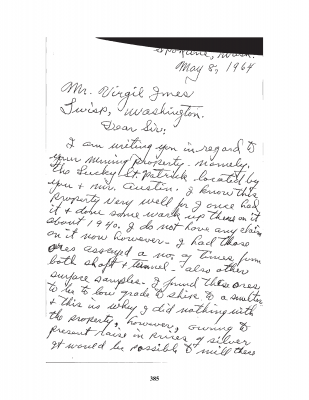 Spokane, Wash.
May 8, 1964
Mr. Virgil Imes
Twisp, Washington.
Dear Sir;
I am writing you in regard to
your mining property - namely,
the Lucky St. Patrick located by
you & Mr. Austin. I know this
property very well for I once had
it & done some work up there on it
about 1940. I do not have any claim
on it now however. I had those
ores assayed a no. of times from
both shaft & tunnel - also other
surface samples. I found these ores
to be to low grade to ship to a smelter
& this is why I did nothing with
the property. However, owing to
present raise in prices of silver
it would be possible to mill these
385